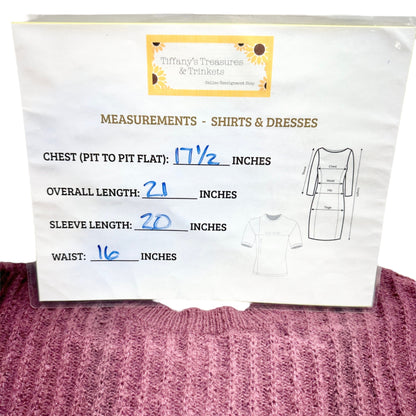 Tiffany's Treasures
& Trinkets
Online Consignment Shop
MEASUREMENTS - SHIRTS & DRESSES
CHEST (PIT TO PIT FLAT): 17 1/2 INCHES
OVERALL LENGTH: 21 INCHES
SLEEVE LENGTH: 20 INCHES
WAIST: 16 INCHES
Chest
Waist
Hip